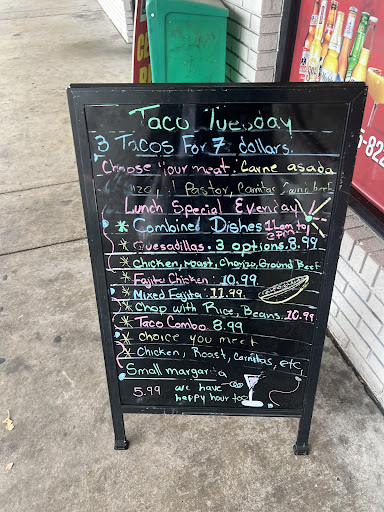 Taco Tuesday
3 Tacos For 7 dollars.
Choose your meat. Carne asada
Pastor, Carnitas
Lunch Special Everyday
* Combined Dishes 11am to 3PM
* Quesadillas. 3 options. 8.99
* Chicken, roast, Chorizo, Ground Beef
* Fajita Chicken: 10.99
* Mixed Fajita: 11.99
* Chop with Rice, Beans. 10.99
* Taco Combo 8.99
* choice you meet
* Chicken, Roast, Carnitas, etc
Small margarita
5.99 we have
happy hour too